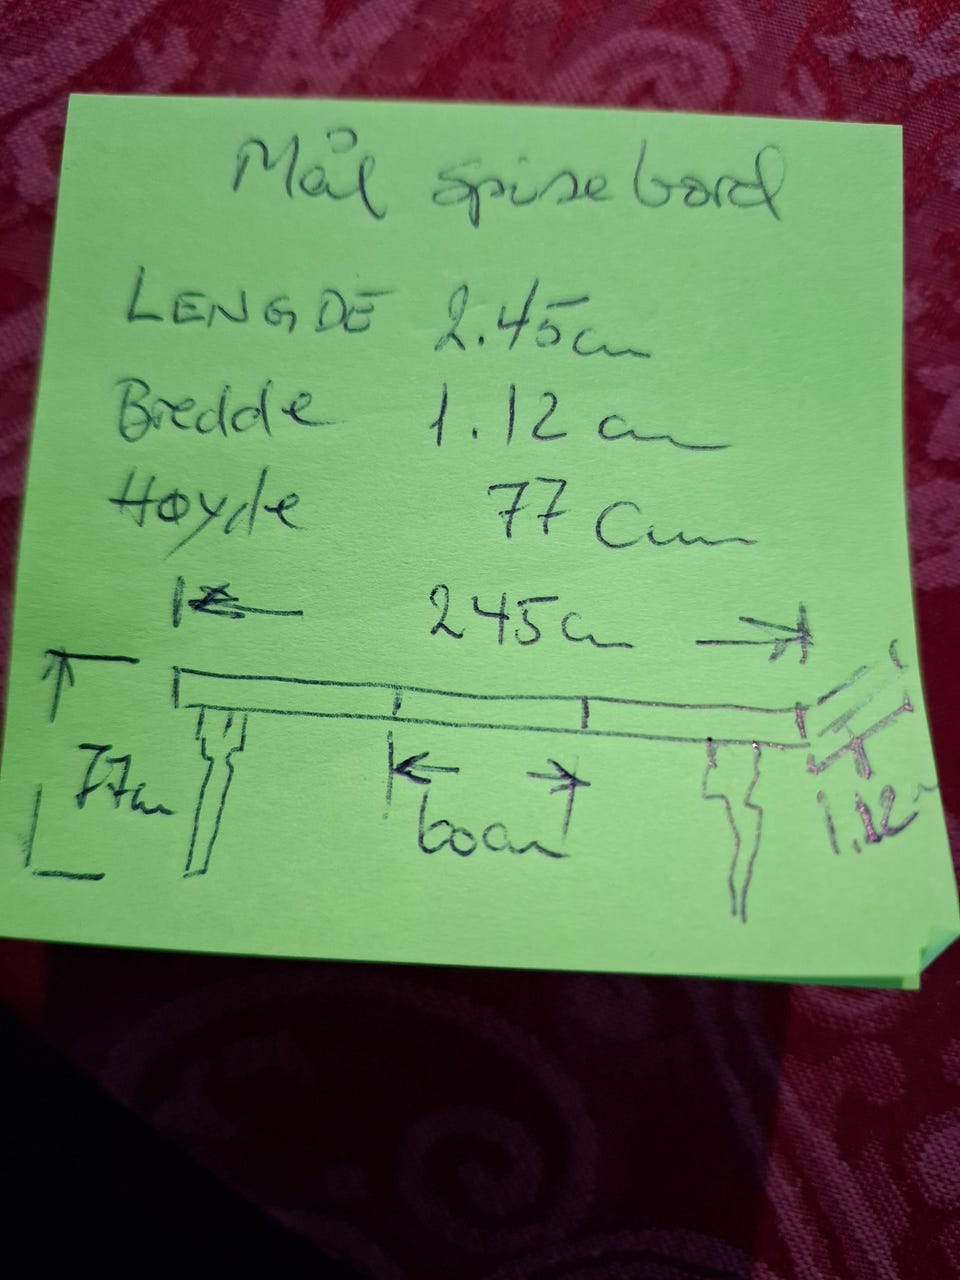 Mål spisebord
LENGDE 2.45cm
Bredde 1.12 cm
Høyde 77 Cm
245cm
77cm
60cm
1.12